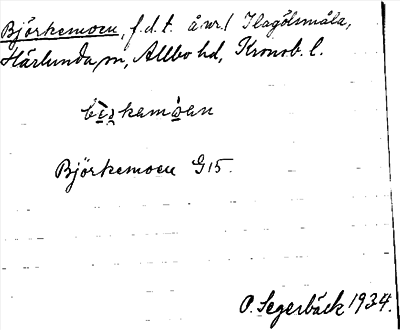 Björkemoen, f.d.t. å nr 1 Flagölsmåla,
Härlunda sn, Allbo hd, Kronob. l.
Björkemoen G15.
P. Segerbäck 1934.